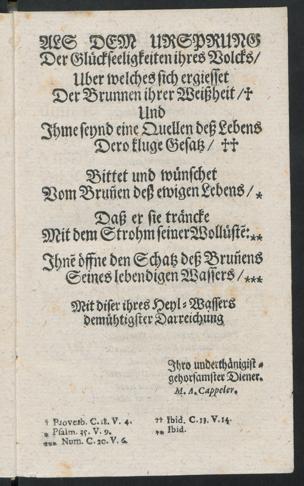 ALS DEM URSPRUNG
Der Glückseeligkeiten ihres Volcks/
Uber welches sich ergiesset
Der Brunnen ihrer Weißheit/†
Und
Ihme seynd eine Quellen deß Lebens
Dero kluge Gesatz/ ††
Bittet und wünschet
Vom Brun̄en deß ewigen Lebens/*
Daß er sie träncke
Mit dem Strohm seiner Wollüstẽ:**
Ihnẽ öffne den Schatz deß Brun̄ens
Seines lebendigen Wassers/***
Mit diser ihres Heyl-Wassers
demühtigster Darreichung
Ihro underthänigist-
gehorsamster Diener.
M. A. Cappeler.
† Proverb. C. 18. V. 4.
†† Ibid. C. 13. V. 14.
* Psalm. 35. V. 9.
** Ibid.
*** Num. C. 20. V. 6.